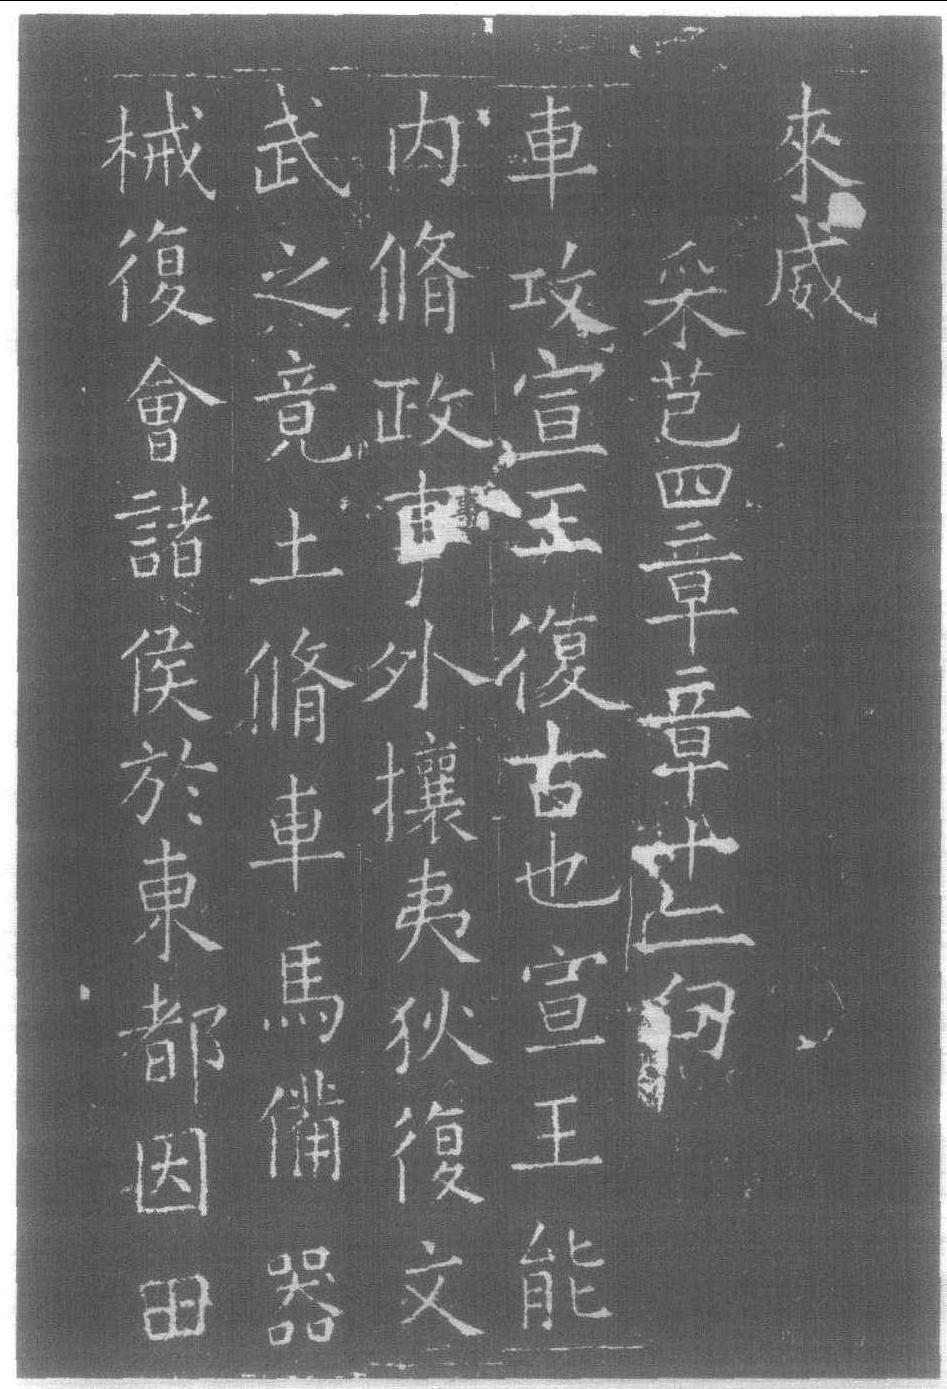 來威
采芑四章章十二句
車攻宣王復古也宣王能
内脩政事外攘夷狄復文
武之竟土脩車馬備器
械復會諸侯於東都因田